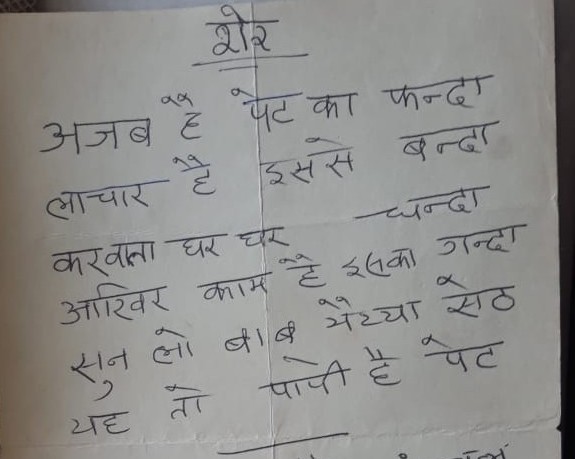 शेर
अजब है पेट का फन्दा
लाचार है इससे बन्दा
करवाता घर घर चन्दा
आखिर काम है इसका गन्दा
सुन लो बाब भैय्या सेठ
यह तो पापी है पेट